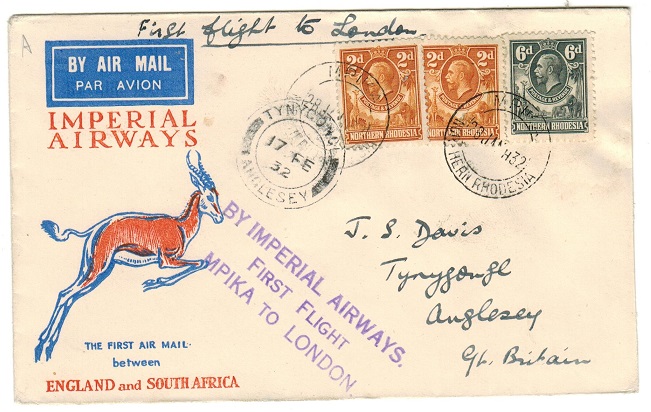 First flight to London
A
BY AIR MAIL
PAR AVION
IMPERIAL
AIRWAYS
2d 2d
POSTAGE & REVENUE POSTAGE & REVENUE
NORTHERN RHODESIA NORTHERN RHODESIA
6d 6d
POSTAGE & REVENUE
NORTHERN RHODESIA
TYNYGONGL
17 FE
32
ANGLESEY
H32
HERN RHODESIA
BY IMPERIAL AIRWAYS.
FIRST FLIGHT
MPIKA TO LONDON
J. S. Davis
Tynygongl
Anglesey
Gt. Britain
THE FIRST AIR MAIL
between
ENGLAND and SOUTH AFRICA